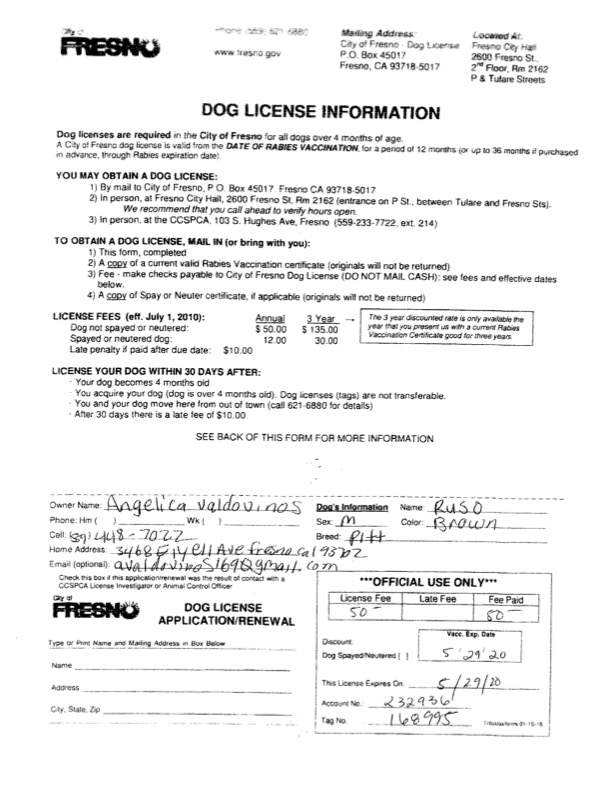 City of
FRESNO
Phone (559) 621-6880
www.fresno.gov
Mailing Address:
City of Fresno - Dog License
P.O. Box 45017
Fresno, CA 93718-5017
Located At:
Fresno City Hall
2600 Fresno St.,
2nd Floor, Rm 2162
P & Tulare Streets
DOG LICENSE INFORMATION
Dog licenses are required in the City of Fresno for all dogs over 4 months of age.
A City of Fresno dog license is valid from the DATE OF RABIES VACCINATION, for a period of 12 months (or up to 36 months if purchased
in advance, through Rabies expiration date).
YOU MAY OBTAIN A DOG LICENSE:
1) By mail to City of Fresno, P.O. Box 45017, Fresno CA 93718-5017
2) In person, at Fresno City Hall, 2600 Fresno St, Rm 2162 (entrance on P St., between Tulare and Fresno Sts).
We recommend that you call ahead to verify hours open.
3) In person, at the CCSPCA, 103 S. Hughes Ave, Fresno (559-233-7722, ext. 214)
TO OBTAIN A DOG LICENSE, MAIL IN (or bring with you):
1) This form, completed
2) A copy of a current valid Rabies Vaccination certificate (originals will not be returned)
3) Fee - make checks payable to City of Fresno Dog License (DO NOT MAIL CASH); see fees and effective dates
below.
4) A copy of Spay or Neuter certificate, if applicable (originals will not be returned)
LICENSE FEES (eff. July 1, 2010): Annual 3 Year →
Dog not spayed or neutered: $ 50.00 $ 135.00
Spayed or neutered dog: 12.00 30.00
Late penalty if paid after due date: $10.00
The 3 year discounted rate is only available the
year that you present us with a current Rabies
Vaccination Certificate good for three years
LICENSE YOUR DOG WITHIN 30 DAYS AFTER:
· Your dog becomes 4 months old
· You acquire your dog (dog is over 4 months old). Dog licenses (tags) are not transferable.
· You and your dog move here from out of town (call 621-6880 for details)
· After 30 days there is a late fee of $10.00
SEE BACK OF THIS FORM FOR MORE INFORMATION
Owner Name: Angelica Valdovinos
Phone: Hm ( ) Wk ( )
Cell: 448-7022
Home Address: 3468 Ave fresno Cal
Email (optional): avaldovinos169@gmail.com
Dog's Information Name: RUSO
Sex: M Color: Brown
Breed: Pitt
Check this box if this application/renewal was the result of contact with a
CCSPCA License Investigator or Animal Control Officer
City of
FRESNO
DOG LICENSE
APPLICATION/RENEWAL
Type or Print Name and Mailing Address in Box Below
Name
Address
City, State, Zip
***OFFICIAL USE ONLY***
License Fee Late Fee Fee Paid
50 - 50 -
Discount:
Dog Spayed/Neutered [ ]
Vacc. Exp. Date
5/29/20
This License Expires On: 5/29/20
Account No. 232936
Tag No. 168995